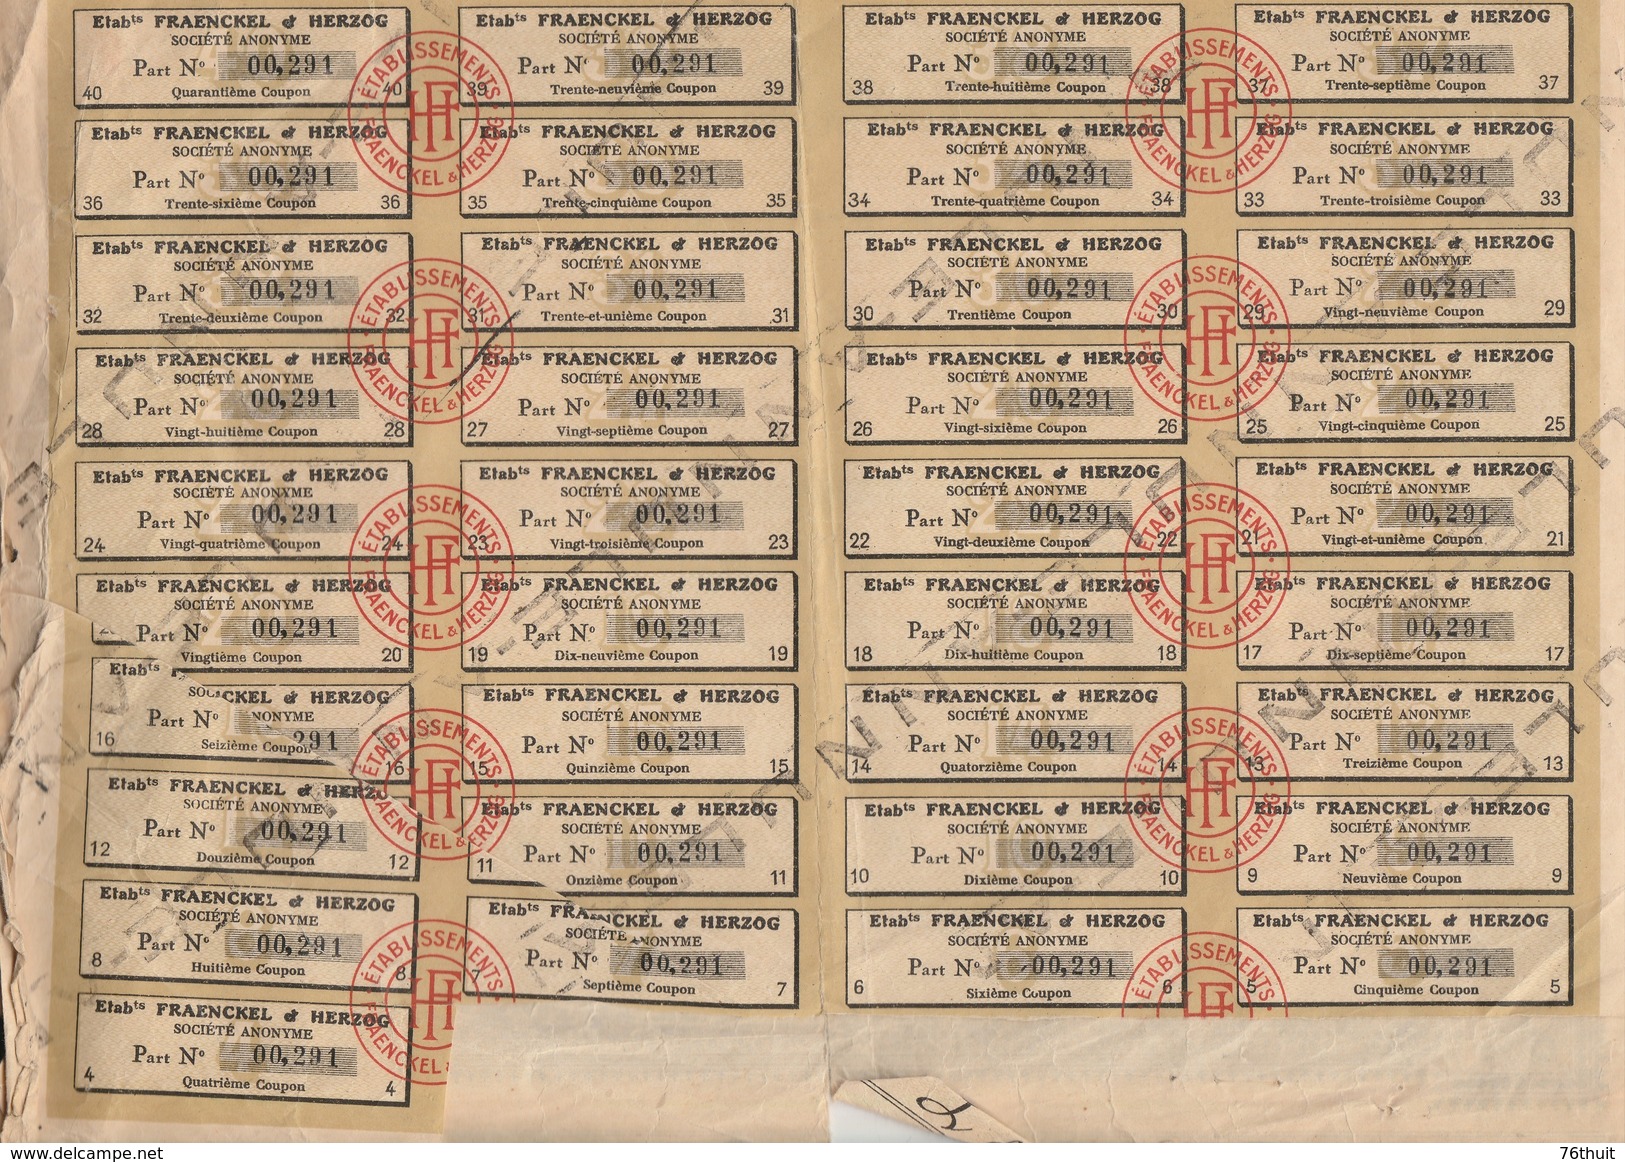 Etabts FRAENCKEL & HERZOG
SOCIÉTÉ ANONYME
Part No 00,291
40 Quarantième Coupon 40
Etabts FRAENCKEL & HERZOG
SOCIÉTÉ ANONYME
Part No 00,291
39 Trente-neuvième Coupon 39
Etabts FRAENCKEL & HERZOG
SOCIÉTÉ ANONYME
Part No 00,291
38 Trente-huitième Coupon 38
Etabts FRAENCKEL & HERZOG
SOCIÉTÉ ANONYME
Part No 00,291
37 Trente-septième Coupon 37
Etabts FRAENCKEL & HERZOG
SOCIÉTÉ ANONYME
Part No 00,291
36 Trente-sixième Coupon 36
Etabts FRAENCKEL & HERZOG
SOCIÉTÉ ANONYME
Part No 00,291
35 Trente-cinquième Coupon 35
Etabts FRAENCKEL & HERZOG
SOCIÉTÉ ANONYME
Part No 00,291
34 Trente-quatrième Coupon 34
Etabts FRAENCKEL & HERZOG
SOCIÉTÉ ANONYME
Part No 00,291
33 Trente-troisième Coupon 33
Etabts FRAENCKEL & HERZOG
SOCIÉTÉ ANONYME
Part No 00,291
32 Trente-deuxième Coupon 32
Etabts FRAENCKEL & HERZOG
SOCIÉTÉ ANONYME
Part No 00,291
31 Trente-et-unième Coupon 31
Etabts FRAENCKEL & HERZOG
SOCIÉTÉ ANONYME
Part No 00,291
30 Trentième Coupon 30
Etabts FRAENCKEL & HERZOG
SOCIÉTÉ ANONYME
Part No 00,291
29 Vingt-neuvième Coupon 29
Etabts FRAENCKEL & HERZOG
SOCIÉTÉ ANONYME
Part No 00,291
28 Vingt-huitième Coupon 28
Etabts FRAENCKEL & HERZOG
SOCIÉTÉ ANONYME
Part No 00,291
27 Vingt-septième Coupon 27
Etabts FRAENCKEL & HERZOG
SOCIÉTÉ ANONYME
Part No 00,291
26 Vingt-sixième Coupon 26
Etabts FRAENCKEL & HERZOG
SOCIÉTÉ ANONYME
Part No 00,291
25 Vingt-cinquième Coupon 25
Etabts FRAENCKEL & HERZOG
SOCIÉTÉ ANONYME
Part No 00,291
24 Vingt-quatrième Coupon 24
Etabts FRAENCKEL & HERZOG
SOCIÉTÉ ANONYME
Part No 00,291
23 Vingt-troisième Coupon 23
Etabts FRAENCKEL & HERZOG
SOCIÉTÉ ANONYME
Part No 00,291
22 Vingt-deuxième Coupon 22
Etabts FRAENCKEL & HERZOG
SOCIÉTÉ ANONYME
Part No 00,291
21 Vingt-et-unième Coupon 21
Etabts FRAENCKEL & HERZOG
SOCIÉTÉ ANONYME
Part No 00,291
Vingtième Coupon 20
Etabts FRAENCKEL & HERZOG
SOCIÉTÉ ANONYME
Part No 00,291
19 Dix-neuvième Coupon 19
Etabts FRAENCKEL & HERZOG
SOCIÉTÉ ANONYME
Part No 00,291
18 Dix-huitième Coupon 18
Etabts FRAENCKEL & HERZOG
SOCIÉTÉ ANONYME
Part No 00,291
17 Dix-septième Coupon 17
Etabts CKEL & HERZOG
SOC NONYME
Part No 291
16 Seizième Coupon 16
Etabts FRAENCKEL & HERZOG
SOCIÉTÉ ANONYME
Part No 00,291
15 Quinzième Coupon 15
Etabts FRAENCKEL & HERZOG
SOCIÉTÉ ANONYME
Part No 00,291
14 Quatorzième Coupon 14
Etabts FRAENCKEL & HERZOG
SOCIÉTÉ ANONYME
Part No 00,291
13 Treizième Coupon 13
Etabts FRAENCKEL & HERZO
SOCIÉTÉ ANONYME
Part No 00,291
12 Douzième Coupon 12
Etabts FRAENCKEL & HERZOG
SOCIÉTÉ ANONYME
Part No 00,291
11 Onzième Coupon 11
Etabts FRAENCKEL & HERZOG
SOCIÉTÉ ANONYME
Part No 00,291
10 Dixième Coupon 10
Etabts FRAENCKEL & HERZOG
SOCIÉTÉ ANONYME
Part No 00,291
9 Neuvième Coupon 9
Etabts FRAENCKEL & HERZOG
SOCIÉTÉ ANONYME
Part No 00,291
8 Huitième Coupon 8
Etabts FRAENCKEL & HERZOG
SOCIÉTÉ ANONYME
Part No 00,291
7 Septième Coupon 7
Etabts FRAENCKEL & HERZOG
SOCIÉTÉ ANONYME
Part No 00,291
6 Sixième Coupon 6
Etabts FRAENCKEL & HERZOG
SOCIÉTÉ ANONYME
Part No 00,291
5 Cinquième Coupon 5
Etabts FRAENCKEL & HERZOG
SOCIÉTÉ ANONYME
Part No 00,291
4 Quatrième Coupon 4
ÉTABLISSEMENTS FRAENCKEL & HERZOG
FH
ÉTABLISSEMENTS FRAENCKEL & HERZOG
FH
ÉTABLISSEMENTS FRAENCKEL & HERZOG
FH
ÉTABLISSEMENTS FRAENCKEL & HERZOG
FH
ÉTABLISSEMENTS FRAENCKEL & HERZOG
FH
ÉTABLISSEMENTS FRAENCKEL & HERZOG
FH
ÉTABLISSEMENTS FRAENCKEL & HERZOG
FH
ÉTABLISSEMENTS FRAENCKEL & HERZOG
FH
ÉTABLISSEMENTS FRAENCKEL &
FH
ÉTABLISSEMENTS
76thuit - delcampe.net